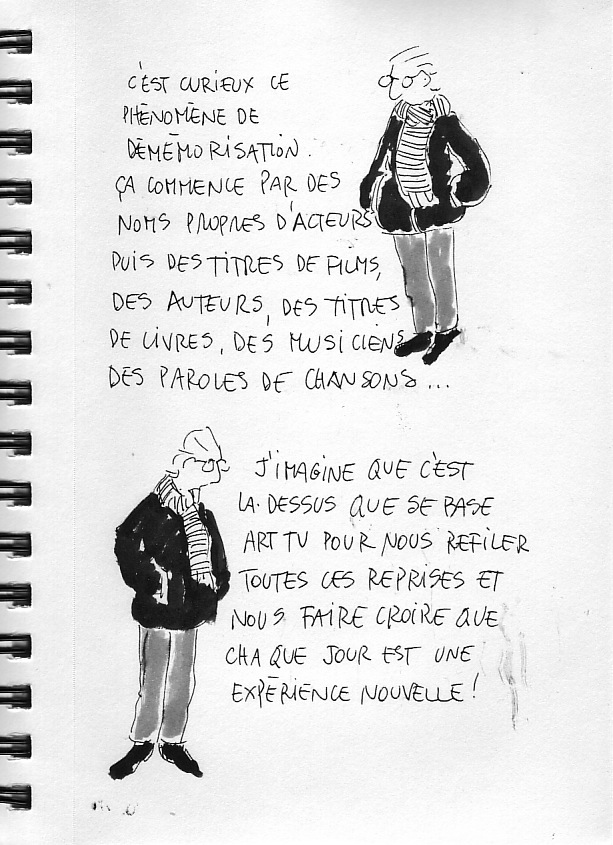 C'EST CURIEUX CE
PHÉNOMÈNE DE
DÉMÉMORISATION.
ÇA COMMENCE PAR DES
NOMS PROPRES D'ACTEURS
PUIS DES TITRES DE FILMS,
DES AUTEURS, DES TITRES
DE LIVRES, DES MUSICIENS
DES PAROLES DE CHANSONS...
J'IMAGINE QUE C'EST
LA-DESSUS QUE SE BASE
ART TV POUR NOUS REFILER
TOUTES CES REPRISES ET
NOUS FAIRE CROIRE QUE
CHAQUE JOUR EST UNE
EXPÉRIENCE NOUVELLE!